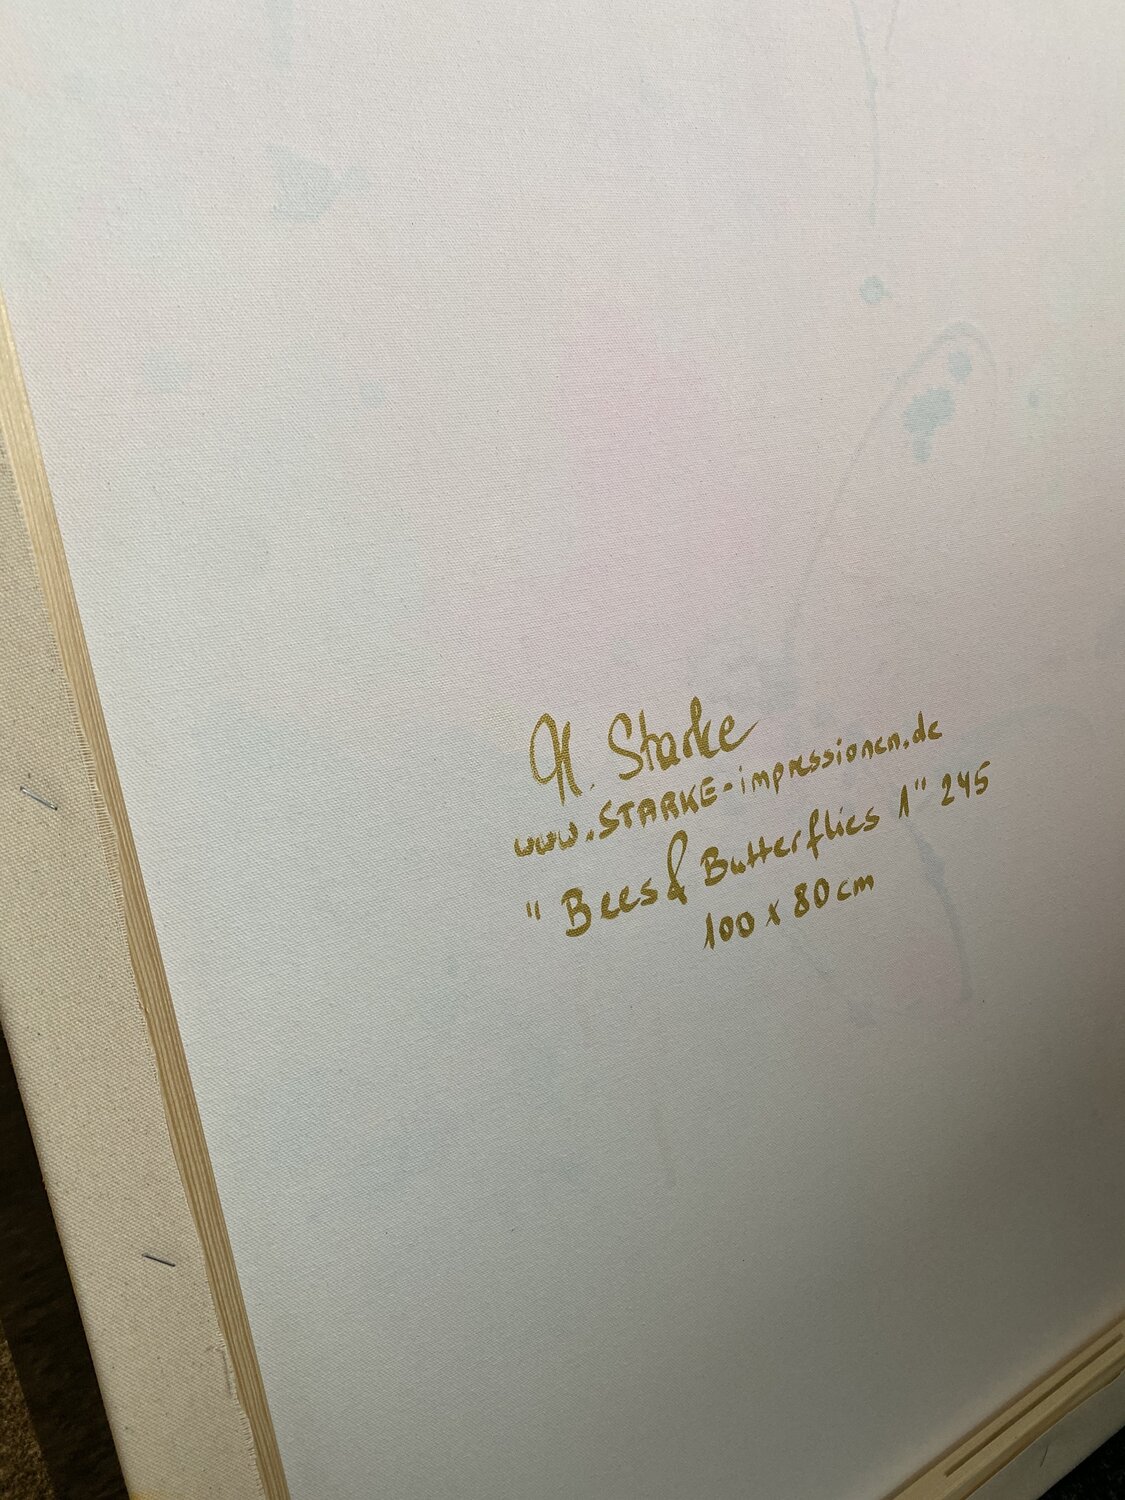 H. Starke
www.STARKE-impressionen.de
"Bees & Butterflies 1" 245
100 x 80 cm